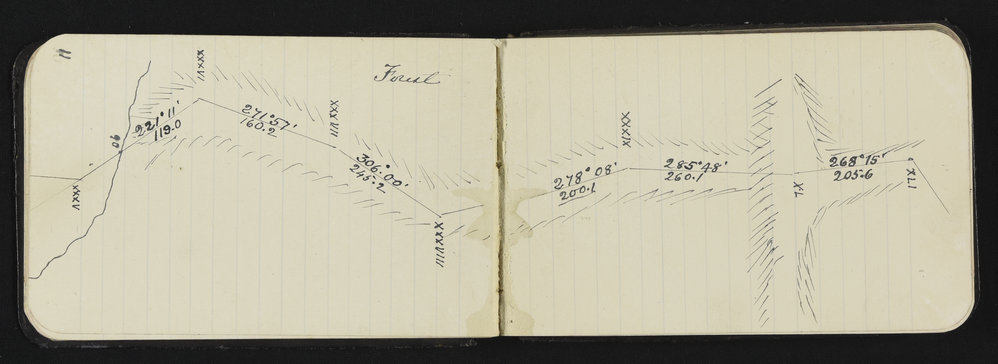 11
Forest
XXXV
90
221°11'
119.0
XXXVI
271°57'
160.2
XXXVII
306°00'
245.2
XXXVIII
278°08'
200.1
XXXIX
285°48'
260.1
XL
268°15'
205.6
XLI